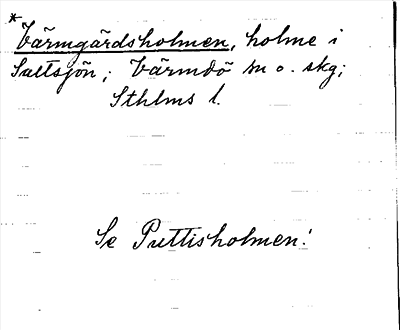 * Värmgärdsholmen, holme i
Saltsjön; Värmdö sn o. skg;
Sthlms l.
Se Puttisholmen!